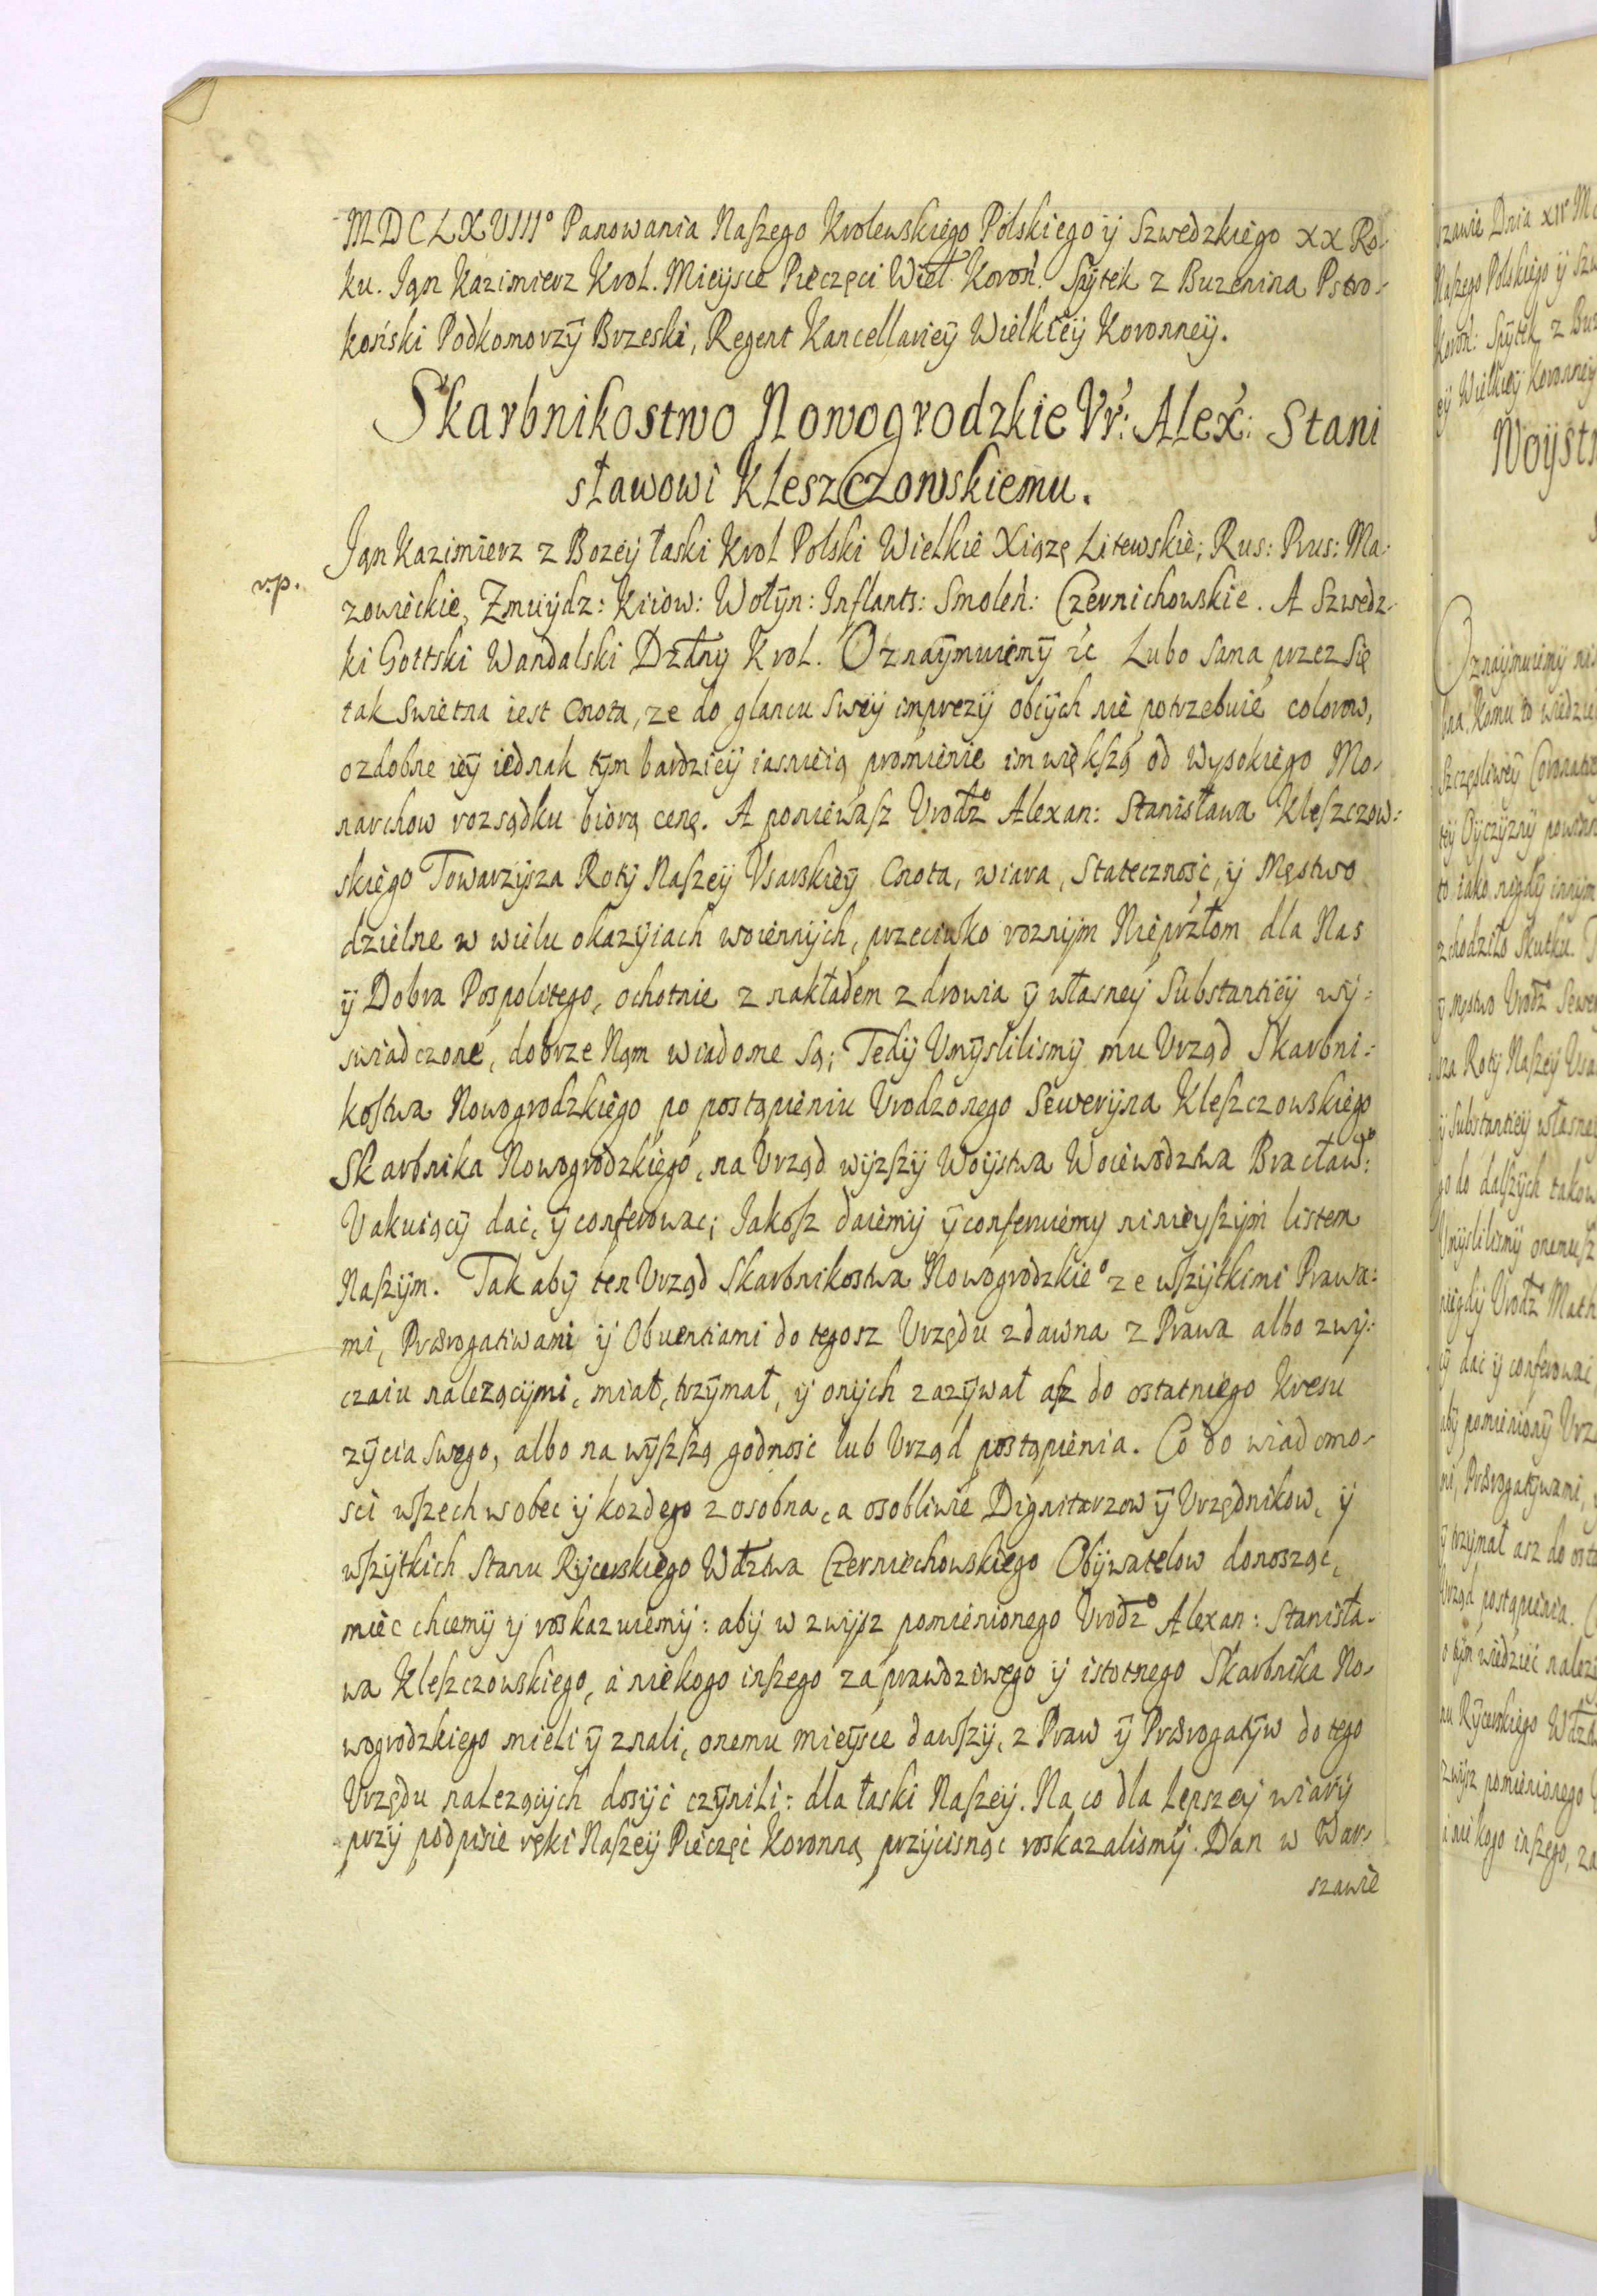 MDCLXVIII° Panowania Naszego Krolewskiego Polskiego ÿ Szwedzkiego XX Ro-
ku. Jan Kazimierz Krol. Mieÿsce Pieczęci Wiel. Koron. Spÿtek z Buzenina Pstro-
koński Podkomorzÿ Brzeski, Regent Kancellarieÿ Wielkieÿ Koronneÿ.
Skarbnikostwo Nowogrodzkie Vr: Alex: Stani
sławowi Kleszczowskiemu.
Jan Kazimierz z Bozeÿ łaski Krol Polski Wielkie Xiązę Litewskie; Rus: Prus: Ma-
r.p.
zowieckie, Zmuÿdz: Kiiow: Wołÿn: Inflants: Smoleń: Czernichowskie. A Szwedz-
ki Gottski Wandalski Dzłny Krol. Oznaÿmuiemÿ &c Lubo sama przez się
tak swietna iest Cnota, ze do glancu sweÿ imprezÿ obcÿch nie potrzebuie colorow,
ozdobne ieÿ iednak tÿm bardzieÿ iasnieią promienie im większą od Wysokiego Mo-
narchow rozsądku biorą cenę. A poniewasz Vrodz° Alexan: Stanisława Kleszczow-
skiego Towarzÿsza Rotÿ Naszeÿ Vsarskieÿ Cnota, wiara, Statecznosc, ÿ Męstwo
dzielne w wielu okazÿiach woiennÿch, przeciwko roznÿm Nieprzłom dla Nas
ÿ Dobra Pospolitego, ochotnie z nakładem zdrowia ÿ własneÿ Substantieÿ wÿ-
swiadczone, dobrze Nąm wiadome są; Tedÿ Vmÿslilismÿ mu Vrząd Skarbni-
kostwa Nowogrodzkiego po postąpieniu Vrodzonego Sewerÿna Kleszczowskiego
Skarbnika Nowogrodzkiego, na Vrząd wÿzszÿ Woÿstwa Woiewodztwa Bracław°:
Vakuiącÿ dac, ÿ conferowac; Jakosz daiemÿ ÿ conferuiemy ninieÿszÿm listem
Naszÿm. Tak abÿ ten Vrząd Skarbnikostwa Nowogrodzkie° ze wszÿtkimi Prawa-
mi, Prærogatiwami ÿ Obuentiami do tegosz Vrzędu zdawna z Prawa albo zwÿ-
czaiu nalezącÿmi, miał, trzÿmał, ÿ onÿch zazÿwał asz do ostatniego kresu
zÿcia swego, albo na wÿszszą godnosc lub Vrząd postąpienia. Co do wiadomo-
sci wszech wobec ÿ kozdego zosobna, a osobliwie Dignitarzow ÿ Vrzędnikow, ÿ
wszÿtkich Stanu Rÿcerskiego Wdztwa Czerniechowskiego Obÿwatelow donosząc,
miec chcemÿ ÿ roskazuiemÿ: abÿ wzwÿsz pomienionego Vrodz° Alexan: Stanisła-
wa Kleszczowskiego, a nie kogo inszego za prawdziwego ÿ istotnego Skarbnika No-
wogrodzkiego mieli ÿ znali, onemu mieÿsce dawszÿ, z Praw ÿ Prærogatÿw do tego
Vrzędu nalezącÿch dosÿc czÿnili: dla łaski Naszeÿ. Na co dla lepszeÿ wiarÿ
przÿ podpisie ręki Naszeÿ Pieczęć Koronną przÿcisnąc roskazalismÿ. Dan w War-
szawie
szawie Dnia
Naszego Polskiego ÿ Szw
Koron: Spÿtek z Buz
eÿ Wielkieÿ Koronneÿ
Woÿst
Oznaÿmuiemÿ